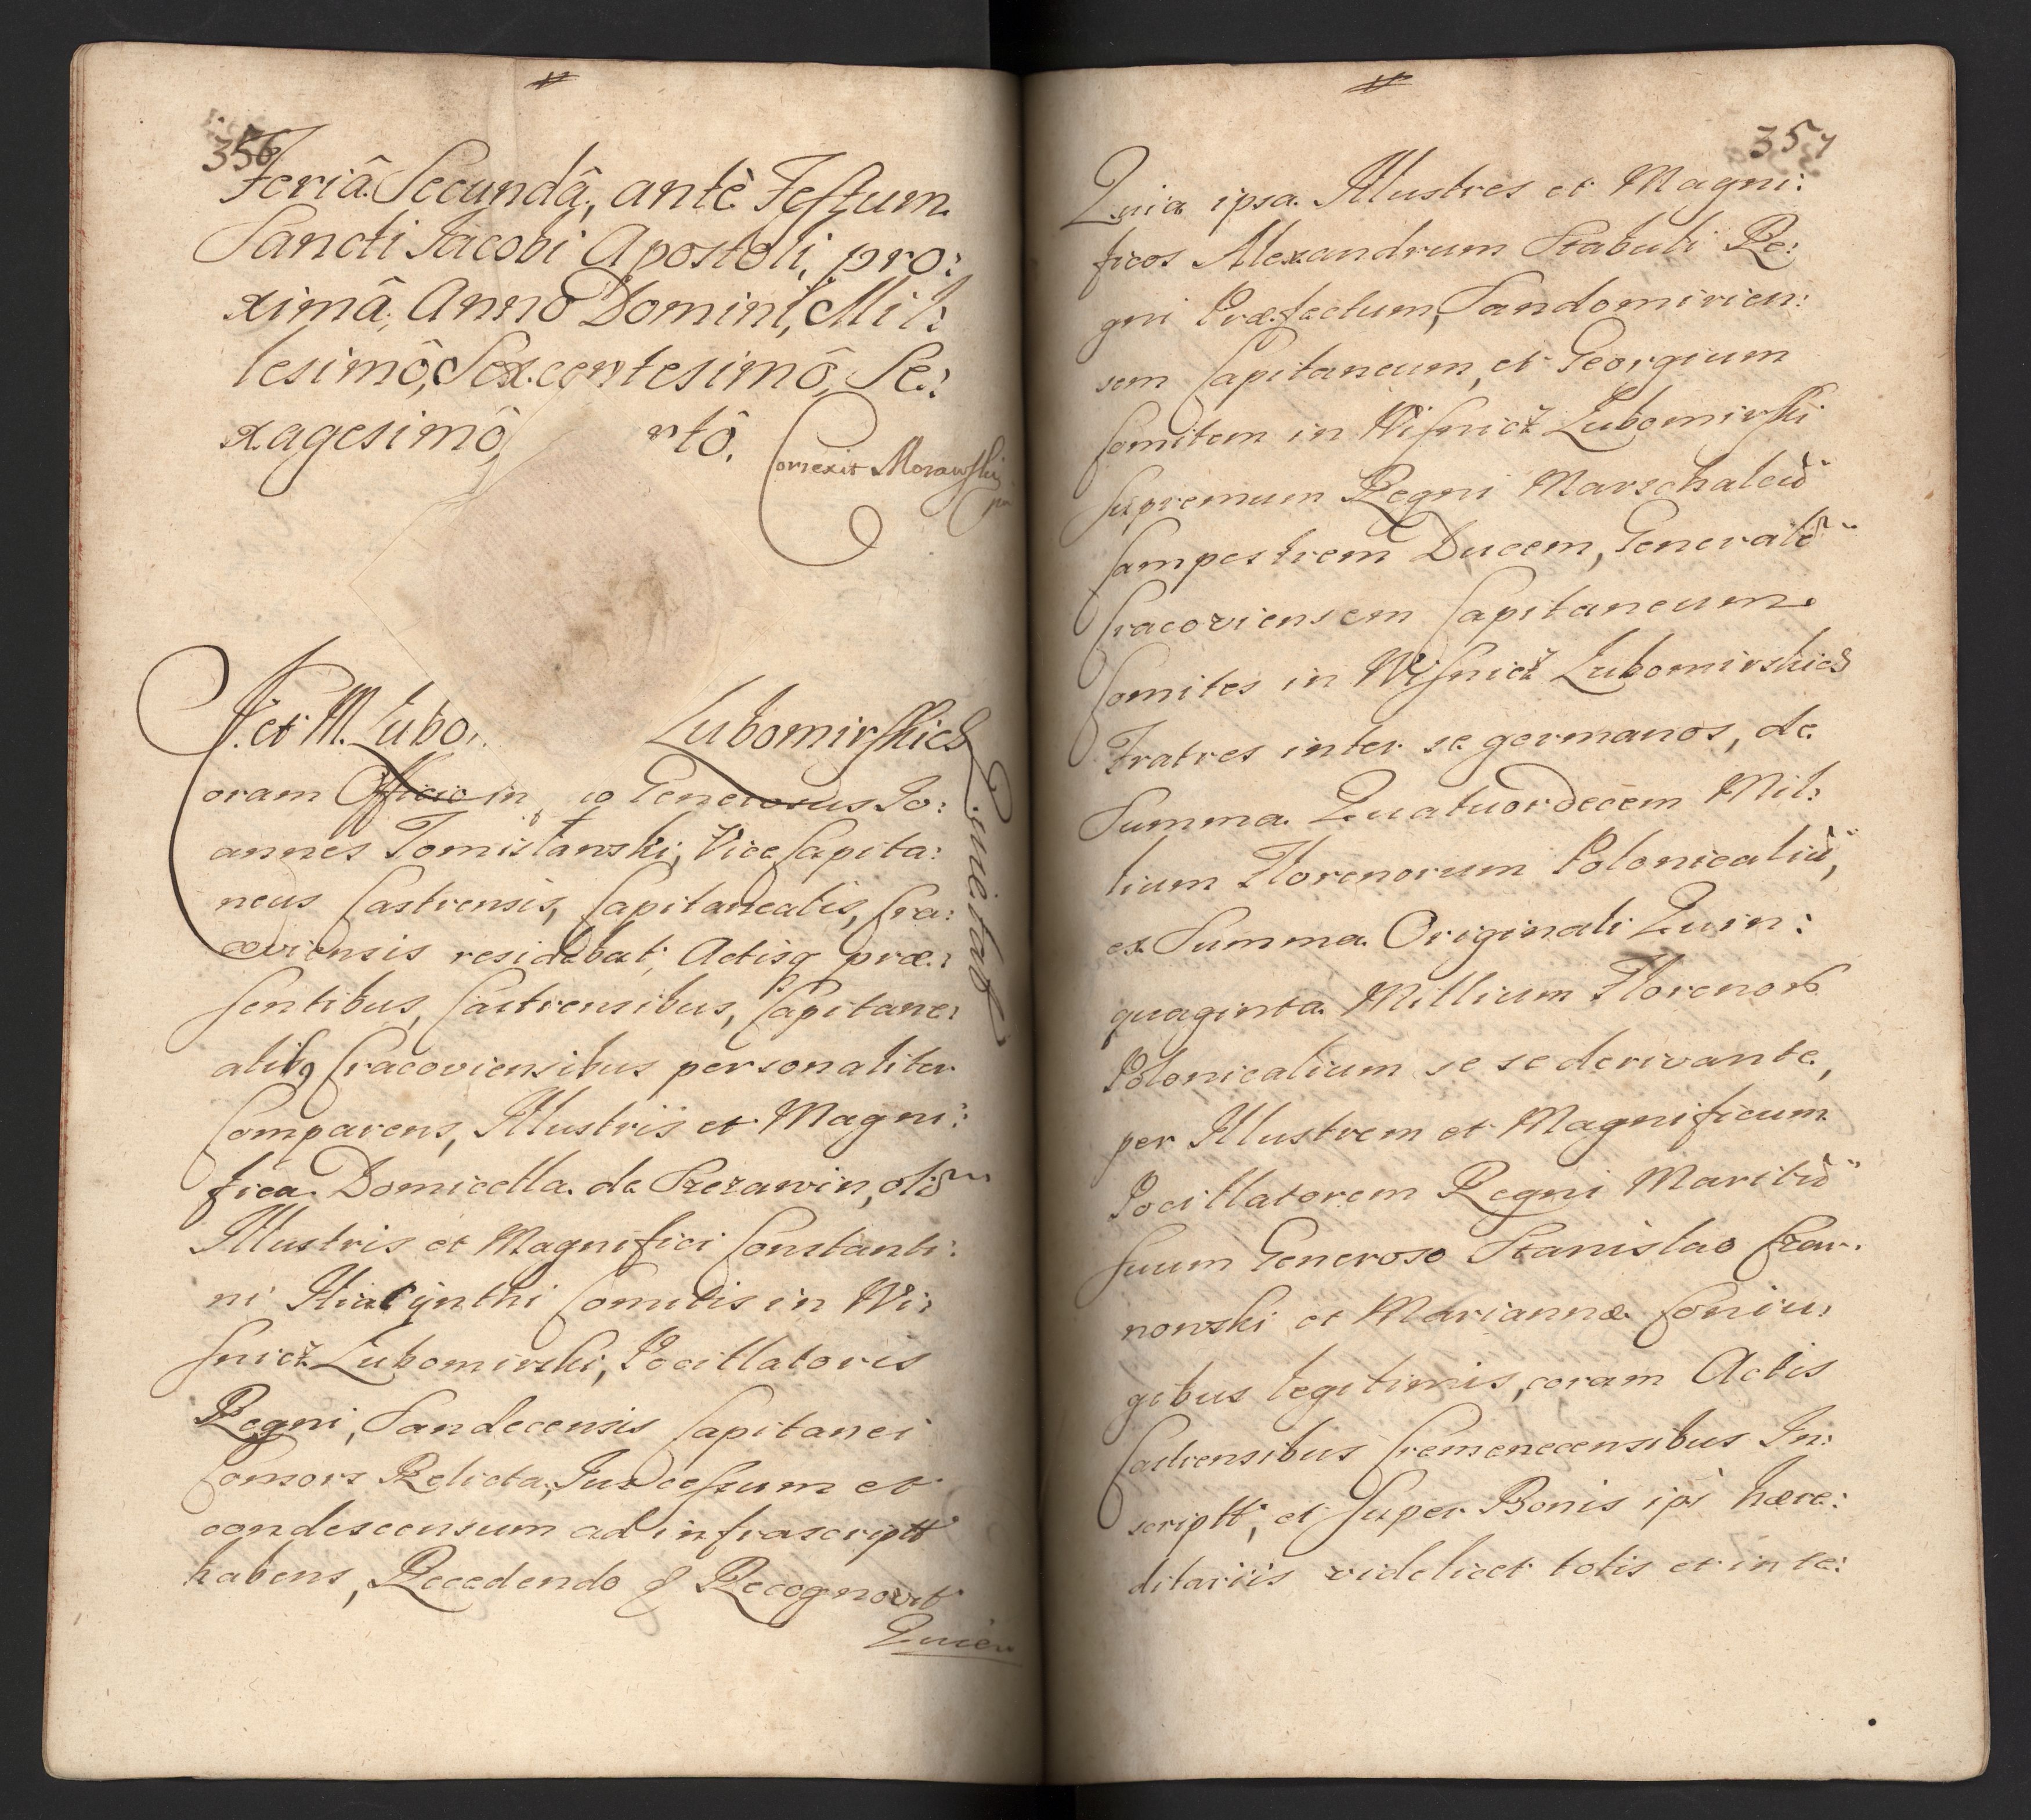 356
Feriâ Secundâ, antè Festum
Sancti Jacobi Apostoli, pro:
ximâ, Anno Domini, Mil:
lesimô, Sexcentesimô, Se:
xagesimô, rtô.
Correxit Morawski
I. et M. Lubo Lubomirskich
Quietat
Coram Officio in Generosus Jo:
annes Tomisławski, Vice Capita:
neus Castrensis, Capitanealis, Cra:
coviensis residebat, Actisq præ:
sentibus, Castrensibus, Capitane:
alibq Cracoviensibus personaliter
Comparens, Illustris et Magni:
fica Domicella de Szczawin, oli
Illustris et Magnifici Constanti:
ni Hiacÿnthi Comitis in Wi:
snicz Lubomirski, Pocillatoris
Regni, Sandecensis Capitanei
Consors Relicta, Jus cessum et
condescensum ad infrascriptt
habens, Recedendo & Recognovit
Quia
357
Quia ipsa Illustres et Magni:
ficos Alexandrum Stabuli Re:
gni Præfectum, Sandomirien:
sem Capitaneum, et Georgium
Comitem in Wisnicz Lubomirski
Supremum Regni Marschalcū
Campestrem Ducem, Generalē
Cracoviensem Capitaneum
Comites in Wisnicz Lubomirskich
Fratres inter se germanos, de
Summa Quatuordecem Mil:
lium Florenorum Polonicaliū,
ex Summa Originali Quin:
quaginta Millium Florenor
Polonicalium se se derivante,
per Illustrem et Magnificum
Pocillatorem Regni Maritū
suum Generoso Stanislao Czar:
nowski et Mariannæ Coniu:
gibus legitimis, coram Actis
Castrensibus Cremenecensibus In:
scriptt, et super Bonis ipś hære:
ditariis videlicet totis et inte: